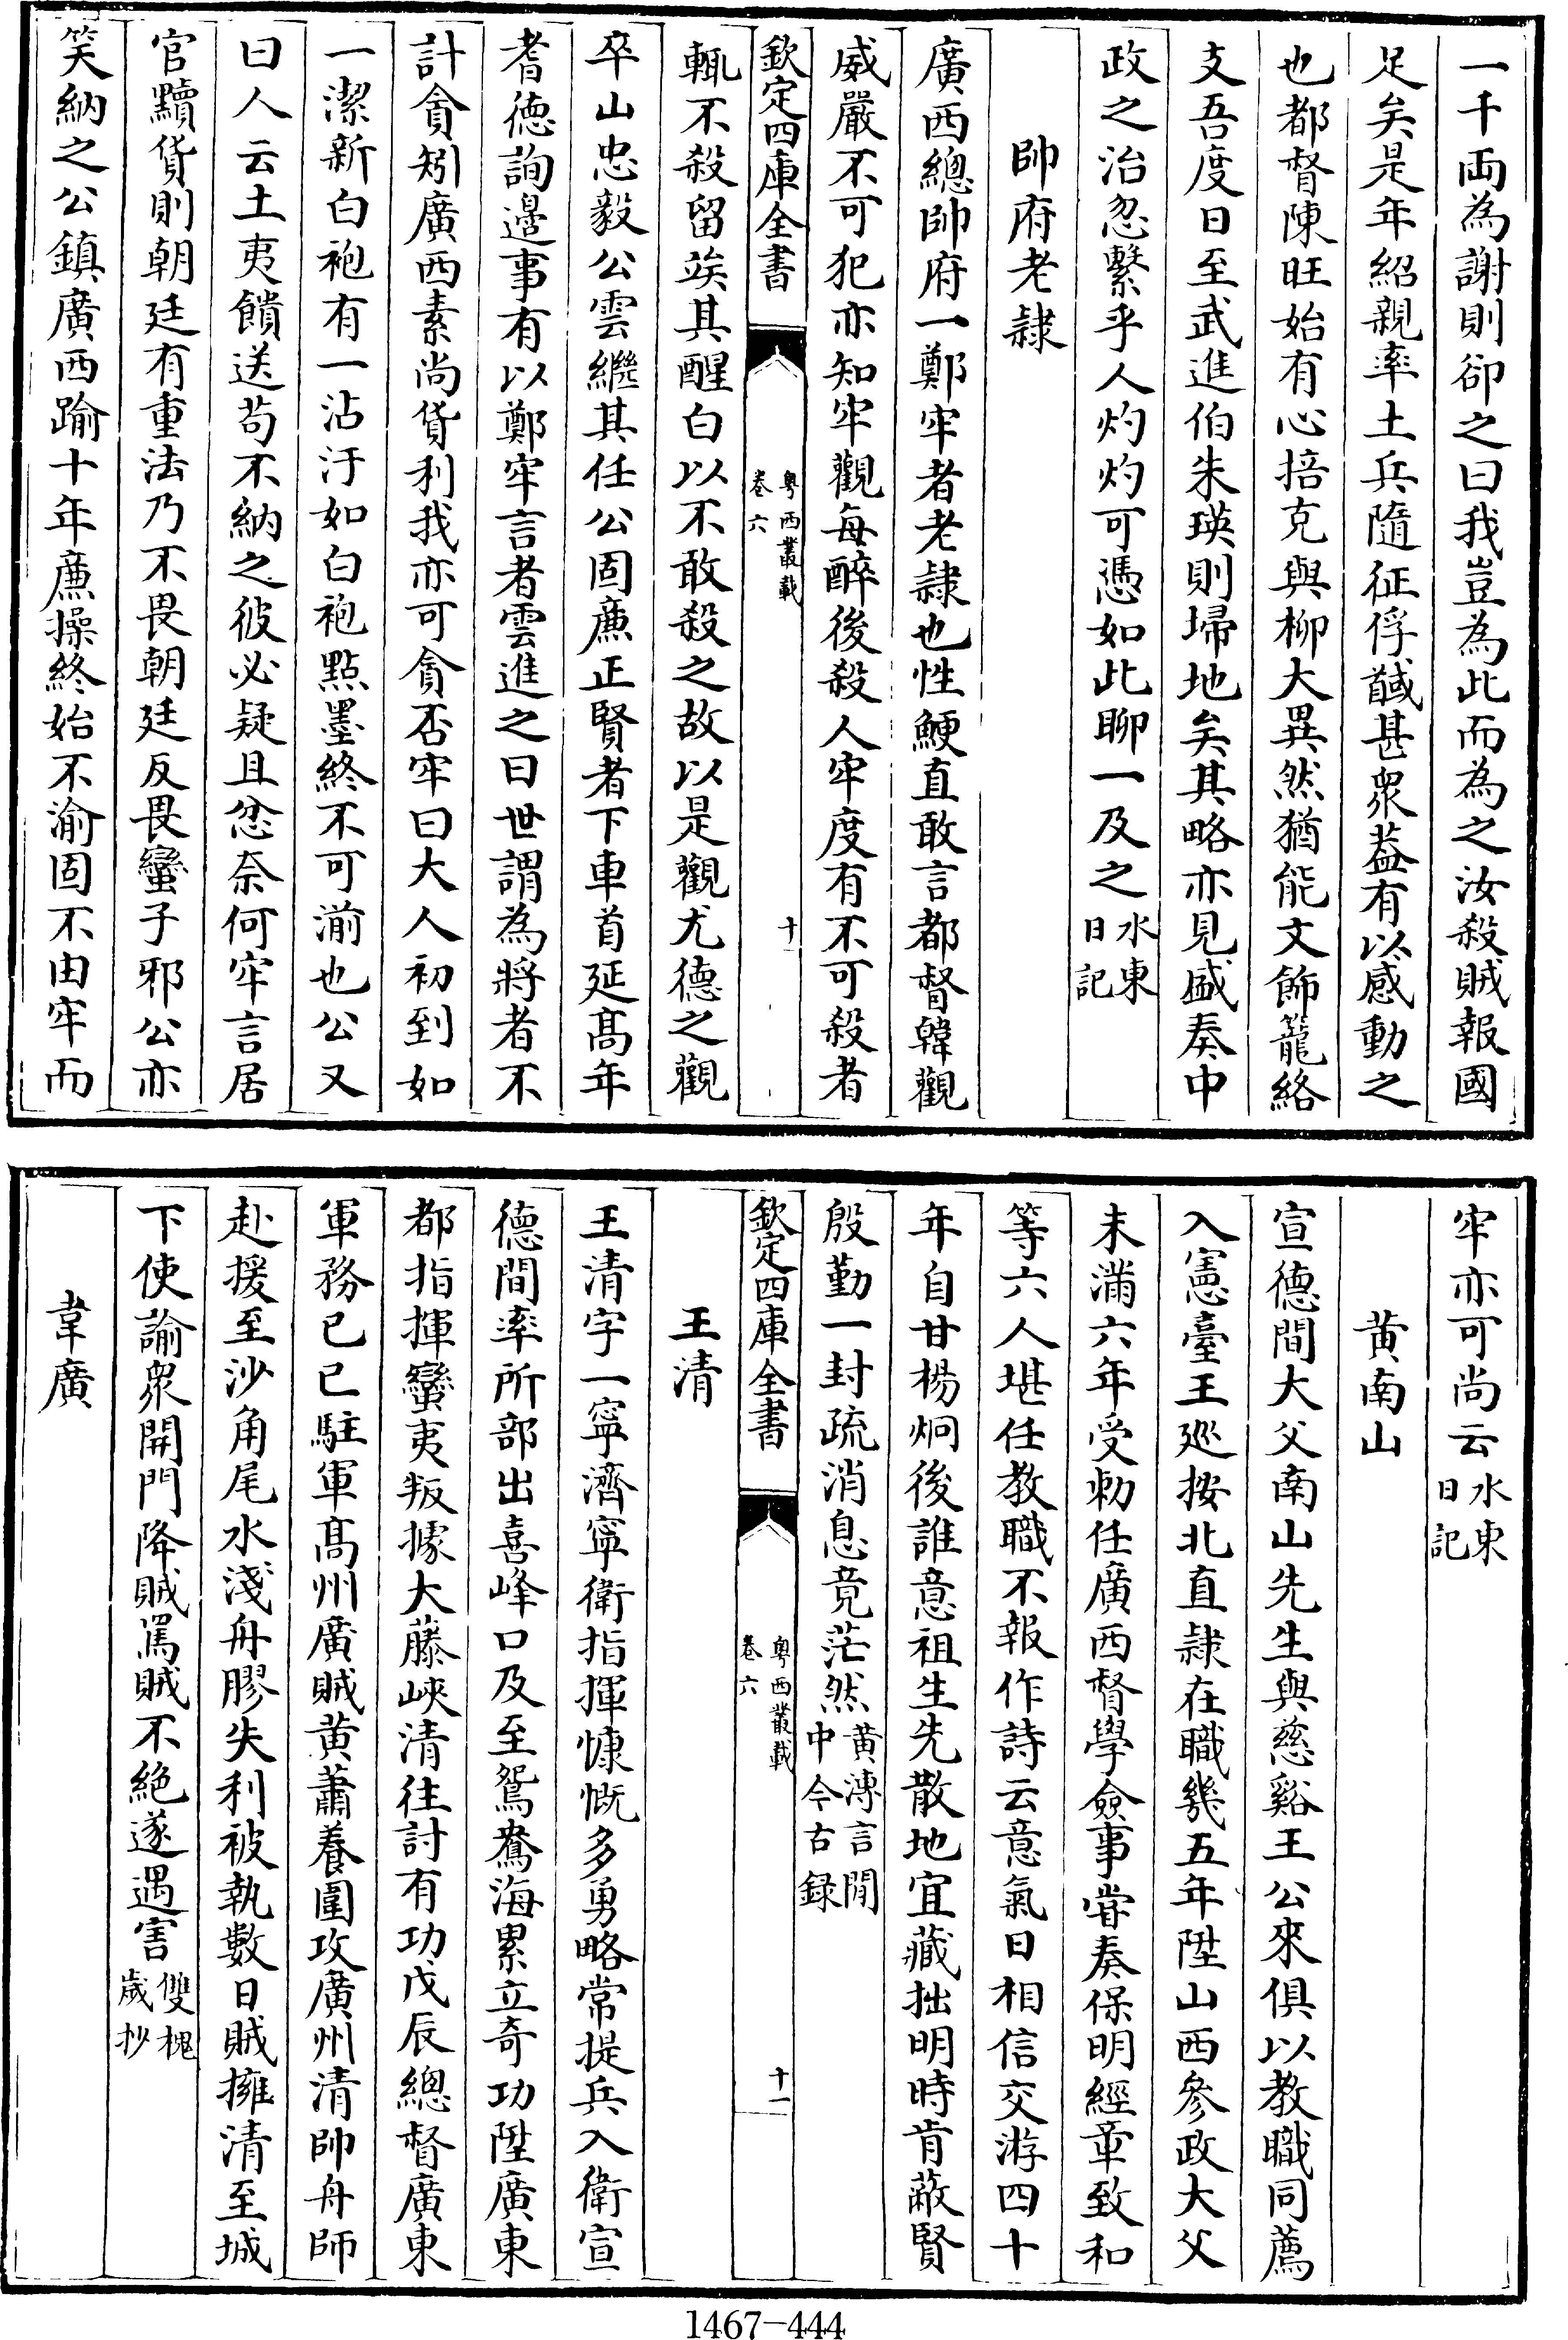 一千兩為謝則卻之曰我豈為此而為之汝殺賊報國
足矣是年紹親率土兵隨征俘馘甚衆葢有以感動之
也都督陳旺始有心掊克與柳大異然猶能文飾籠絡
支吾度日至武進伯朱瑛則埽地矣其略亦見盛奏中
政之治忽繫乎人灼灼可憑如此聊一及之水東
日記
帥府老隷
廣西總帥府一鄭牢者老隷也性鯁直敢言都督韓觀
威嚴不可犯亦知牢觀每醉後殺人牢度有不可殺者
欽定四庫全書
粤西叢載
卷六
十
輒不殺留竢其醒白以不敢殺之故以是觀尤德之觀
卒山忠毅公雲繼其任公固廉正賢者下車首延髙年
耆德詢邊事有以鄭牢言者雲進之曰世謂為將者不
計貪矧廣西素尚貨利我亦可貪否牢曰大人初到如
一潔新白袍有一沾汙如白袍㸃墨終不可湔也公又
曰人云土夷饋送茍不納之彼必疑且忿奈何牢言居
官黷貨則朝廷有重法乃不畏朝廷反畏蠻子邪公亦
笑納之公鎮廣西踰十年廉操終始不渝固不由牢而
牢亦可尚云水東
日記
黄南山
宣德間大父南山先生與慈谿王公來俱以教職同薦
入憲臺王廵按北直隷在職幾五年陞山西參政大父
未滿六年受勑任廣西督學僉事甞奏保明經章致和
等六人堪任教職不報作詩云意氣日相信交游四十
年自甘楊炯後誰意祖生先散地宜藏拙明時肯蔽賢
殷勤一封疏消息竟茫然黄溥言閒
中今古録
欽定四庫全書
粤西叢載
卷六
十一
王清
王清字一寧濟寧衛指揮慷慨多勇略常提兵入衛宣
德間率所部出喜峰口及至鴛鴦海累立奇功陞廣東
都指揮蠻夷叛據大藤峽清往討有功戊辰總督廣東
軍務已巳駐軍髙州廣賊黄蕭養圍攻廣州清帥舟師
赴援至沙角尾水淺舟膠失利被執數日賊擁清至城
下使諭衆開門降賊罵賊不絶遂遇害雙槐
歲抄
韋廣
1467-444